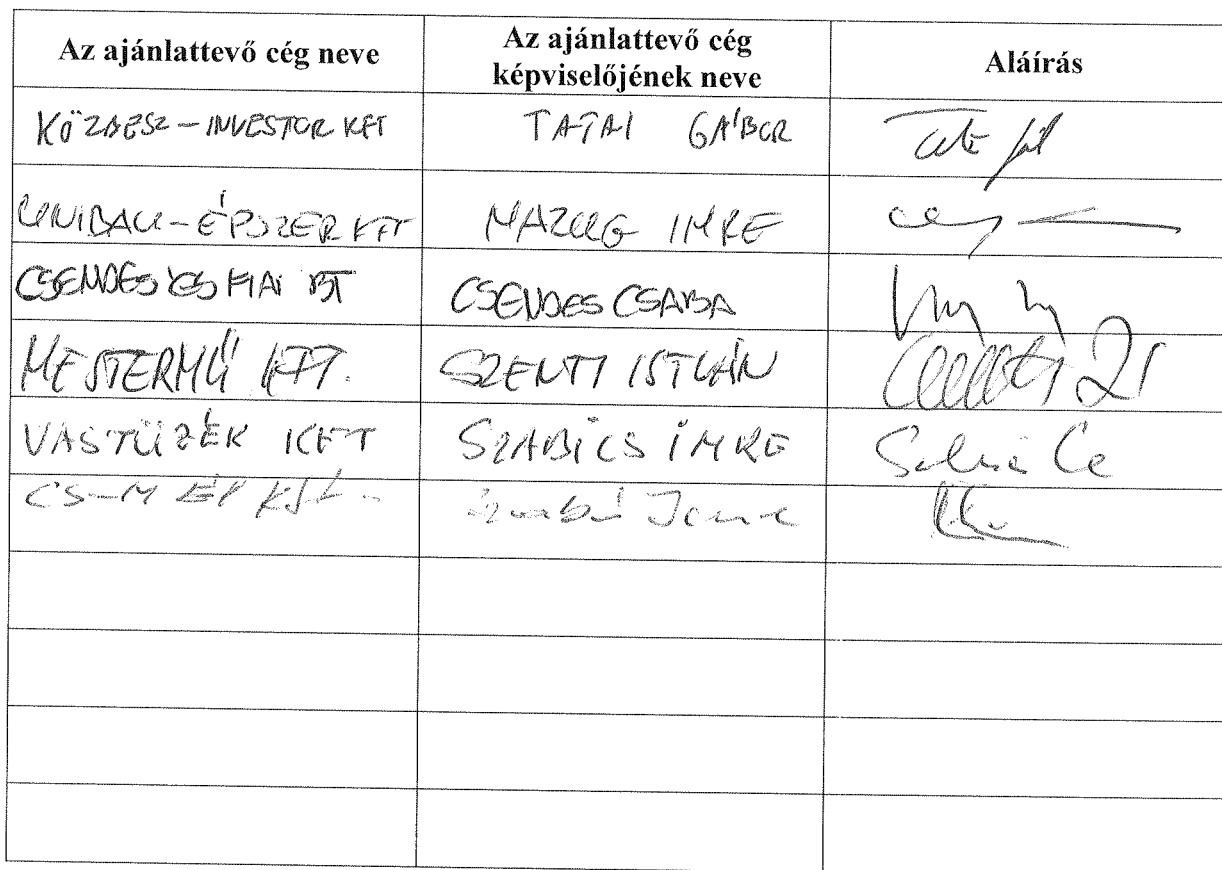 Az ajánlattevő cég neve
Az ajánlattevő cég
képviselőjének neve
Aláírás
KÖZBESZ-INVESTOR KFT TATAI GÁBOR
UNIBAU-ÉPSZER KFT MAZUG IMRE
CSENDES ÉS FIAI BT CSENDES CSABA
MESTERMŰ KFT. SZENTI ISTVÁN
VASTÜZÉK KFT SZABICS IMRE
CS-M ÉP Kft. Szabó